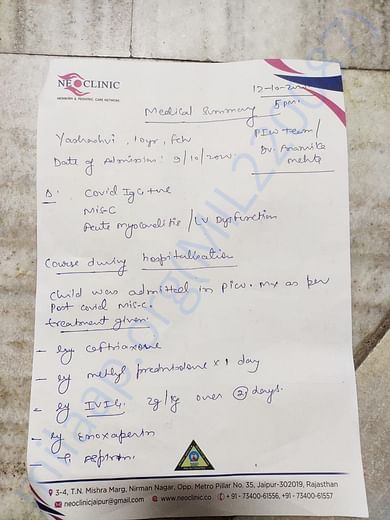 NEOCLINIC
NEWBORN & PEDIATRIC CARE NETWORK
12-10-20
5 pm.
Medical Summary
Yashashvi, 10yr, Fch
PICU Team/
Dr. Anamika
Mehta
Date of Admission: 9/10/20
D:
Covid IgG +ve
MIS-C
Acute myocarditis / LV Dysfunction
Course during hospitalisation
Child was admitted in PICU. Mx as per
Post covid MIS-C.
treatment given:
- Inj Ceftriaxone
- Inj methyl prednisolone x 1 day
- Inj IVIG, 2g/kg over 2 days.
- Inj Enoxaperin
- T
3-4, T.N. Mishra Marg, Nirman Nagar, Opp. Metro Pillar No. 35, Jaipur-302019, Rajasthan
neoclinicjaipur@gmail.com www.neoclinic.co +91 - 73400-61556, +91 - 73400-61557